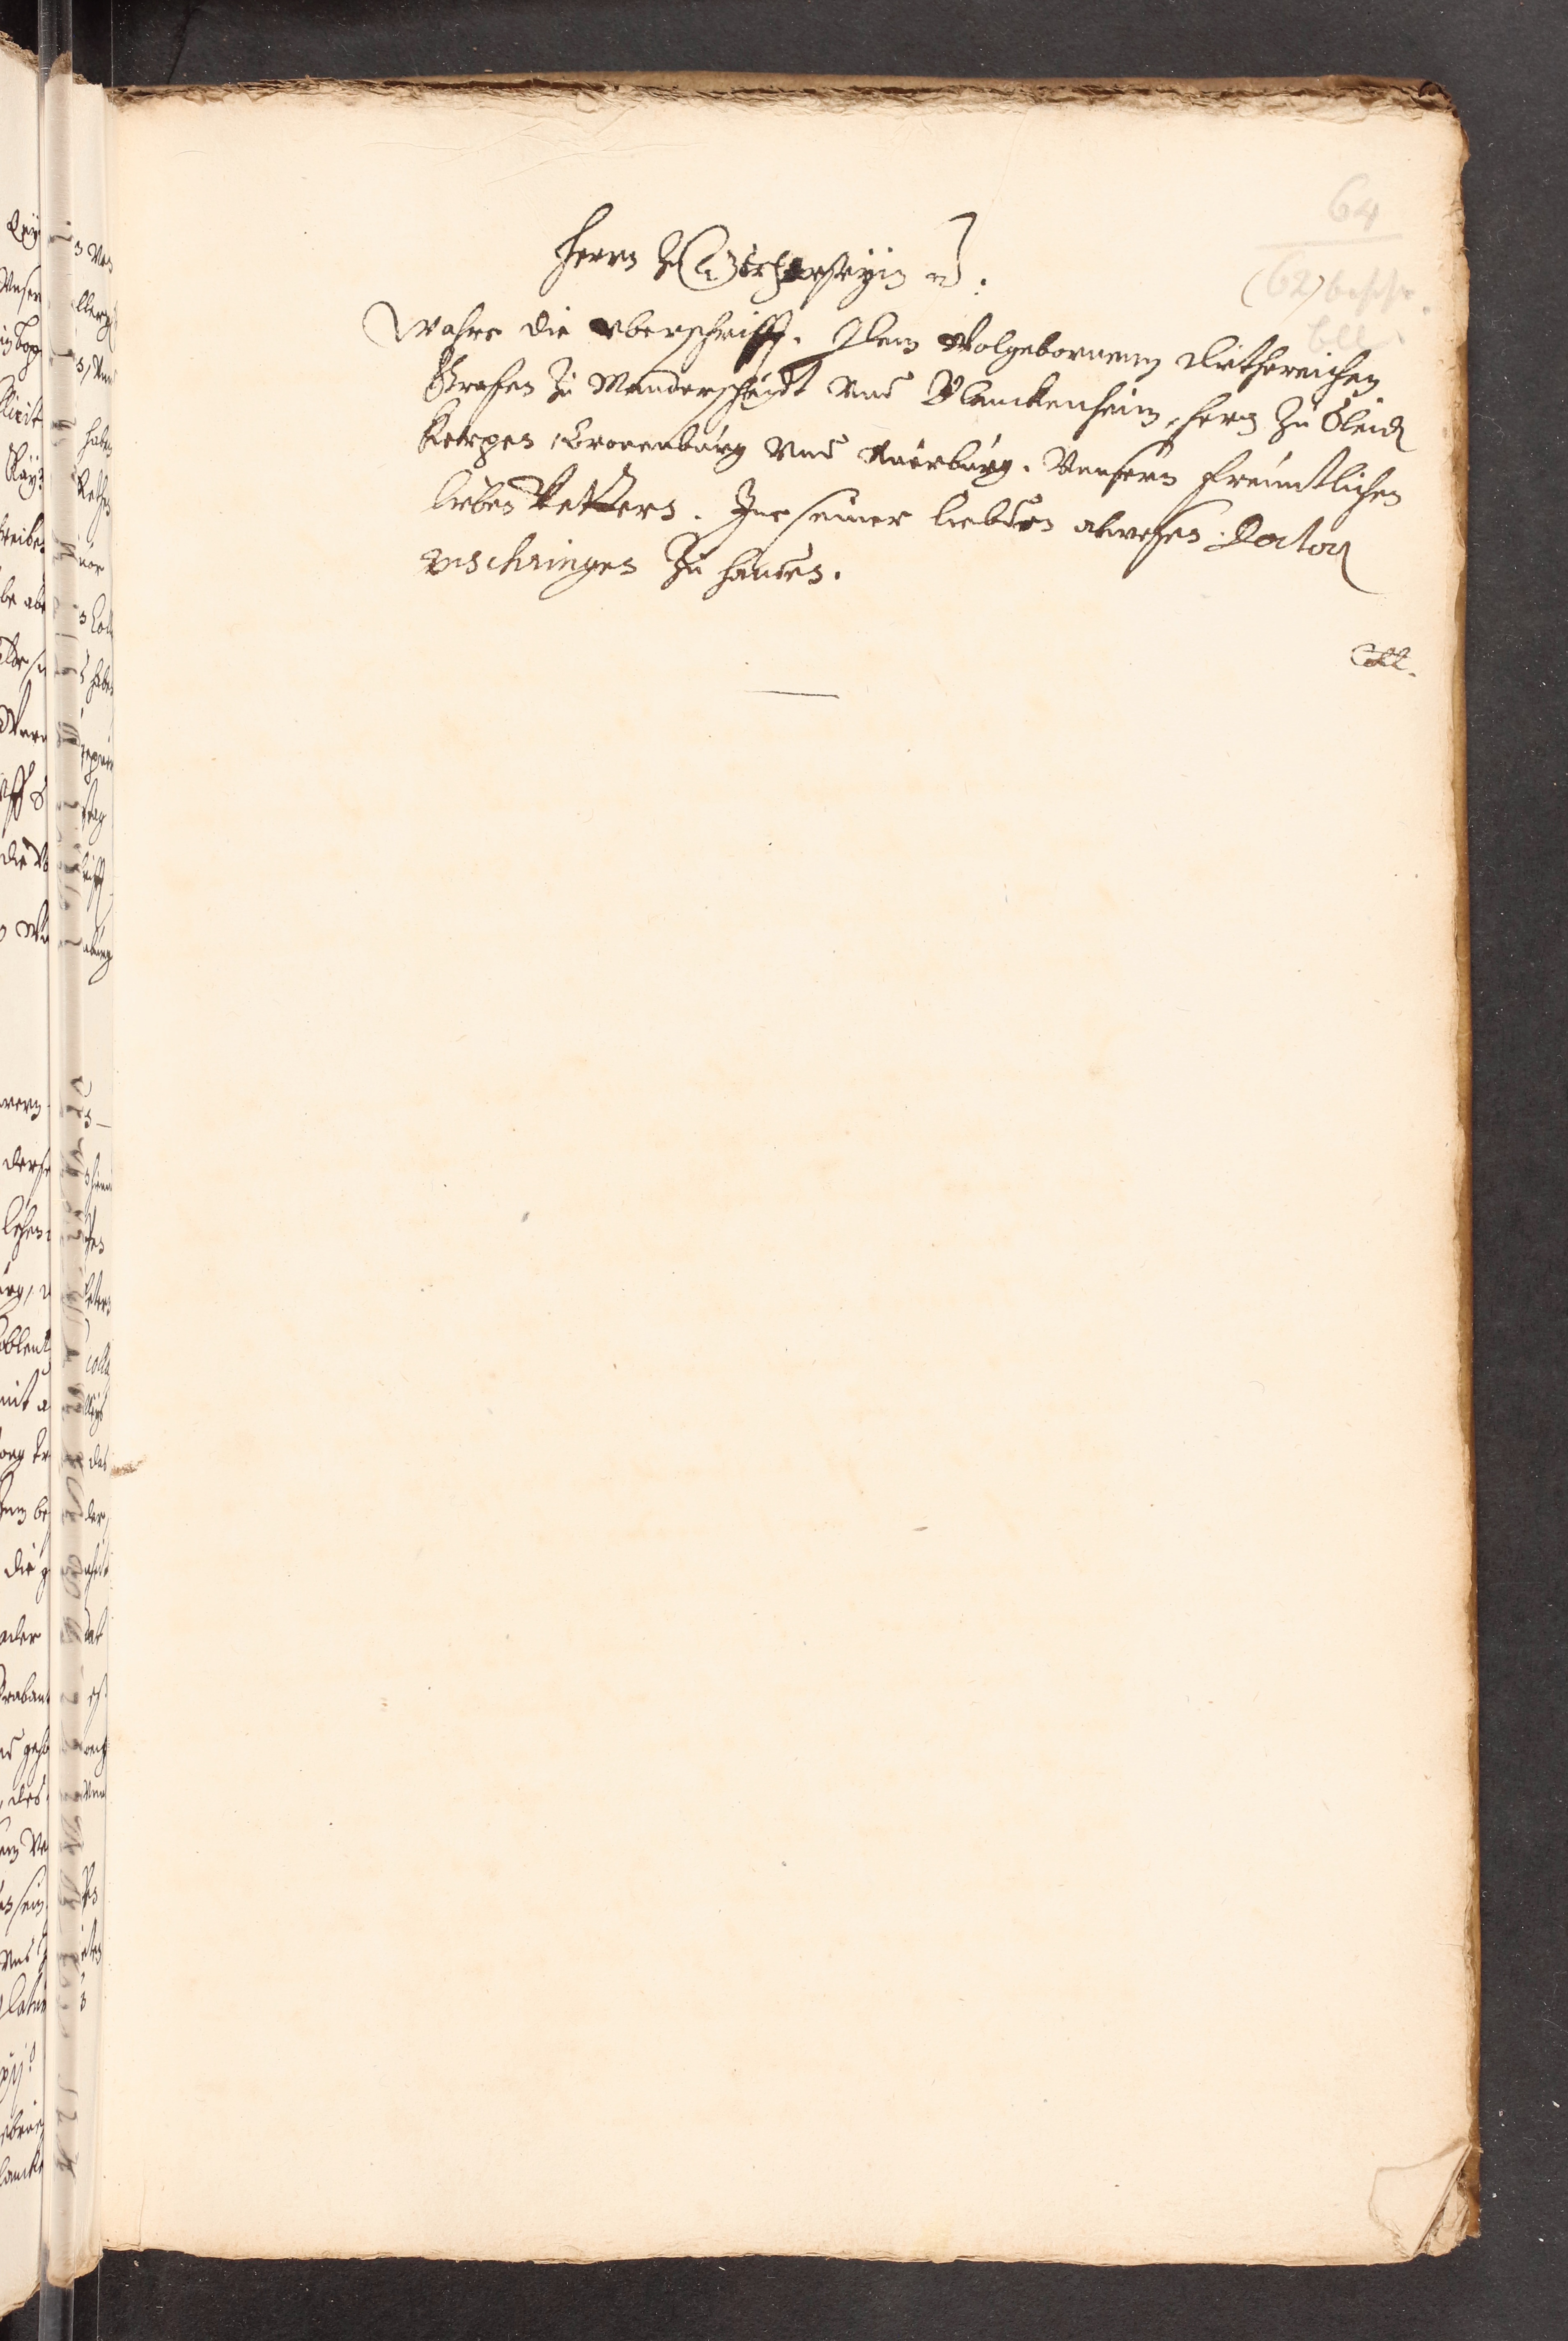 64
(62) beschr.
bll.
Herrn zu
Wahre die vberschrifft. Dem Wolgebornenn Dietherichen
Grafen zu Manderscheidt vnd Blanckenheim, Hern zu Sleid
Kerpen Cronenburg vnd Nuerburg. Vnnserm freuntlichen
lieben Vettern. Inn seiner liebden abwesen. Doctor
zu handen.